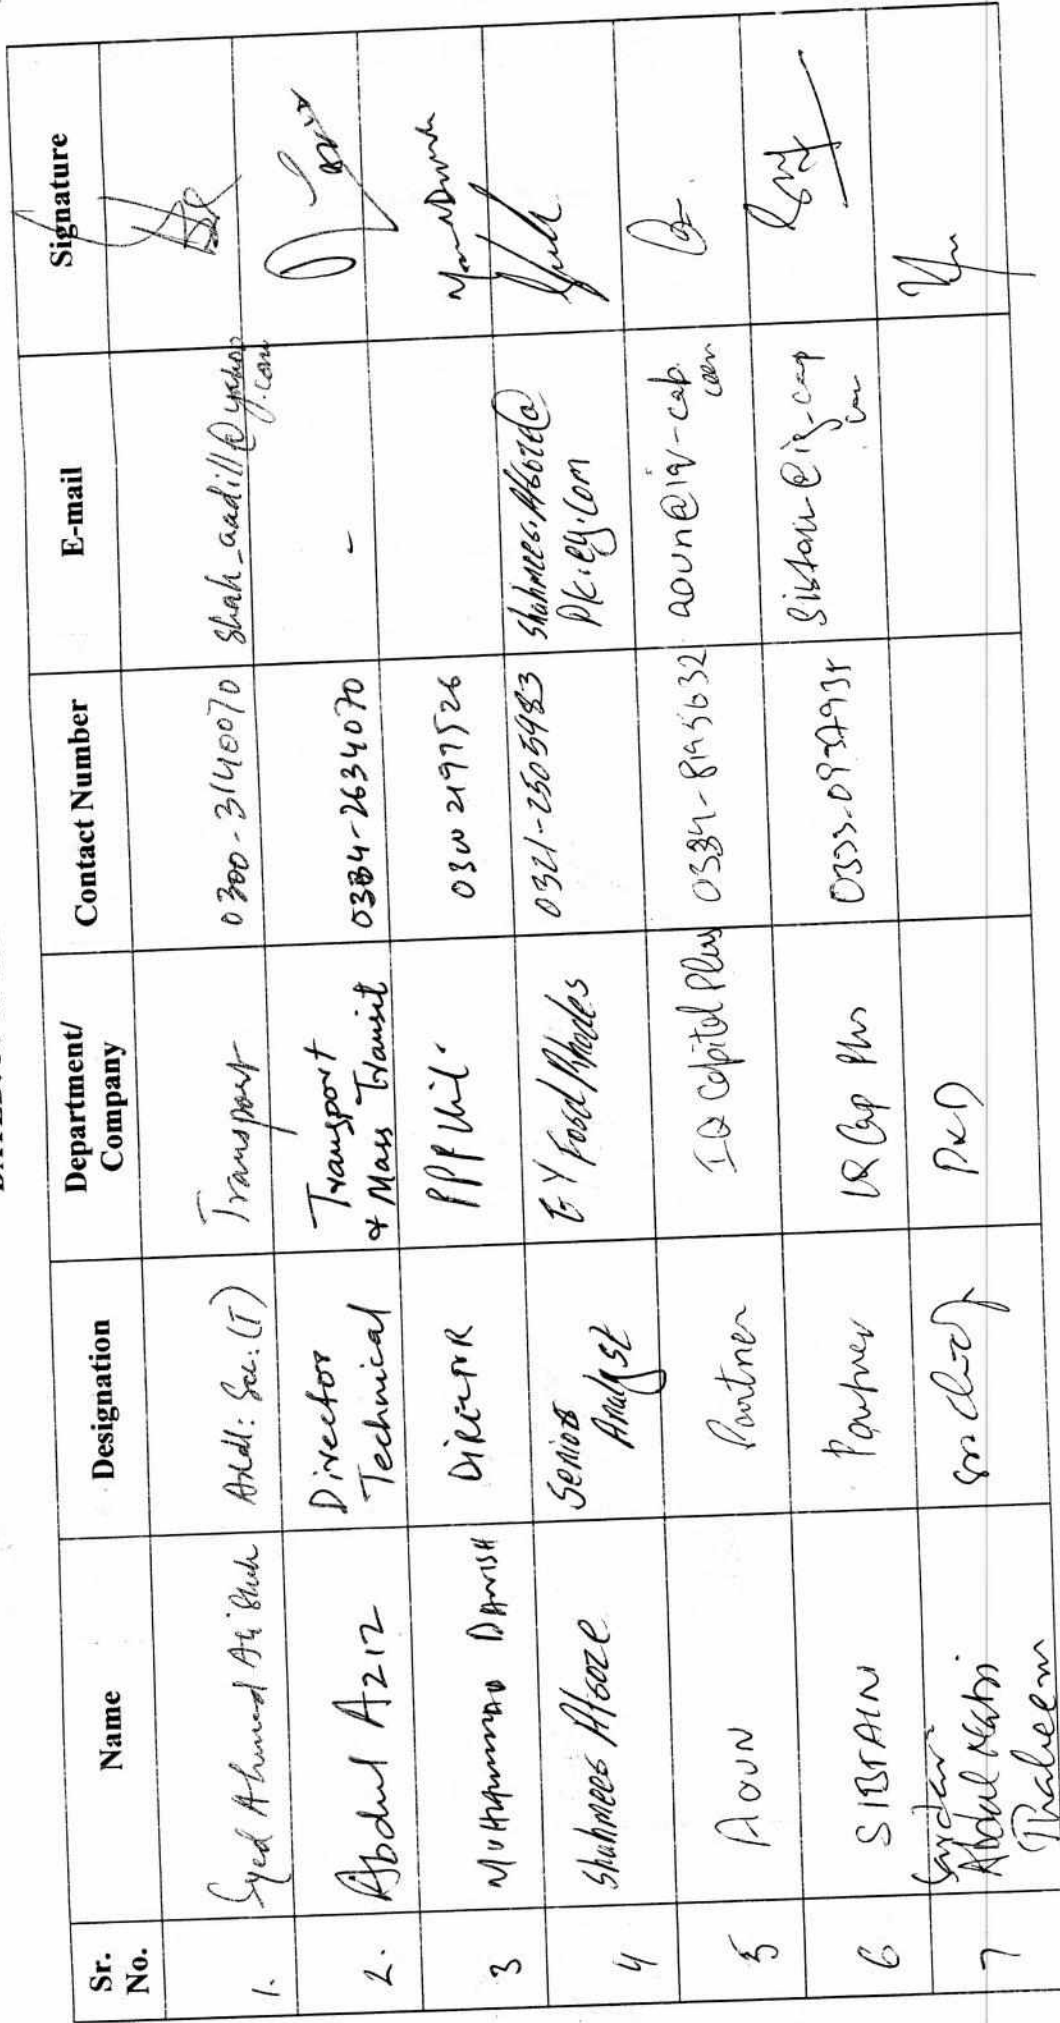 Sr. No. Name Designation Department/ Company Contact Number E-mail Signature
1. Syed Ahmed Ali Shah Addl: Sec: (T) Transport 0300-3140070 shah_aadill@yahoo.com
2. Abdul Aziz Director Technical Transport & Mass Transit 0334-2634070 -
3 MUHAMMAD DANISH DIRECTOR PPP Unit.
4 Shahmeer Afroze Senior Analyst EY Ford Rhodes 0321-2505983 Shahmeer.Afroze@pk.ey.com
5 Aoun Partner IQ Capital Plus aoun@iq-cap.com
6 SIBTAIN Partner IQ Cap Plus Sibtain@iq-cap.com
7 Sardar Abdul Thaheem